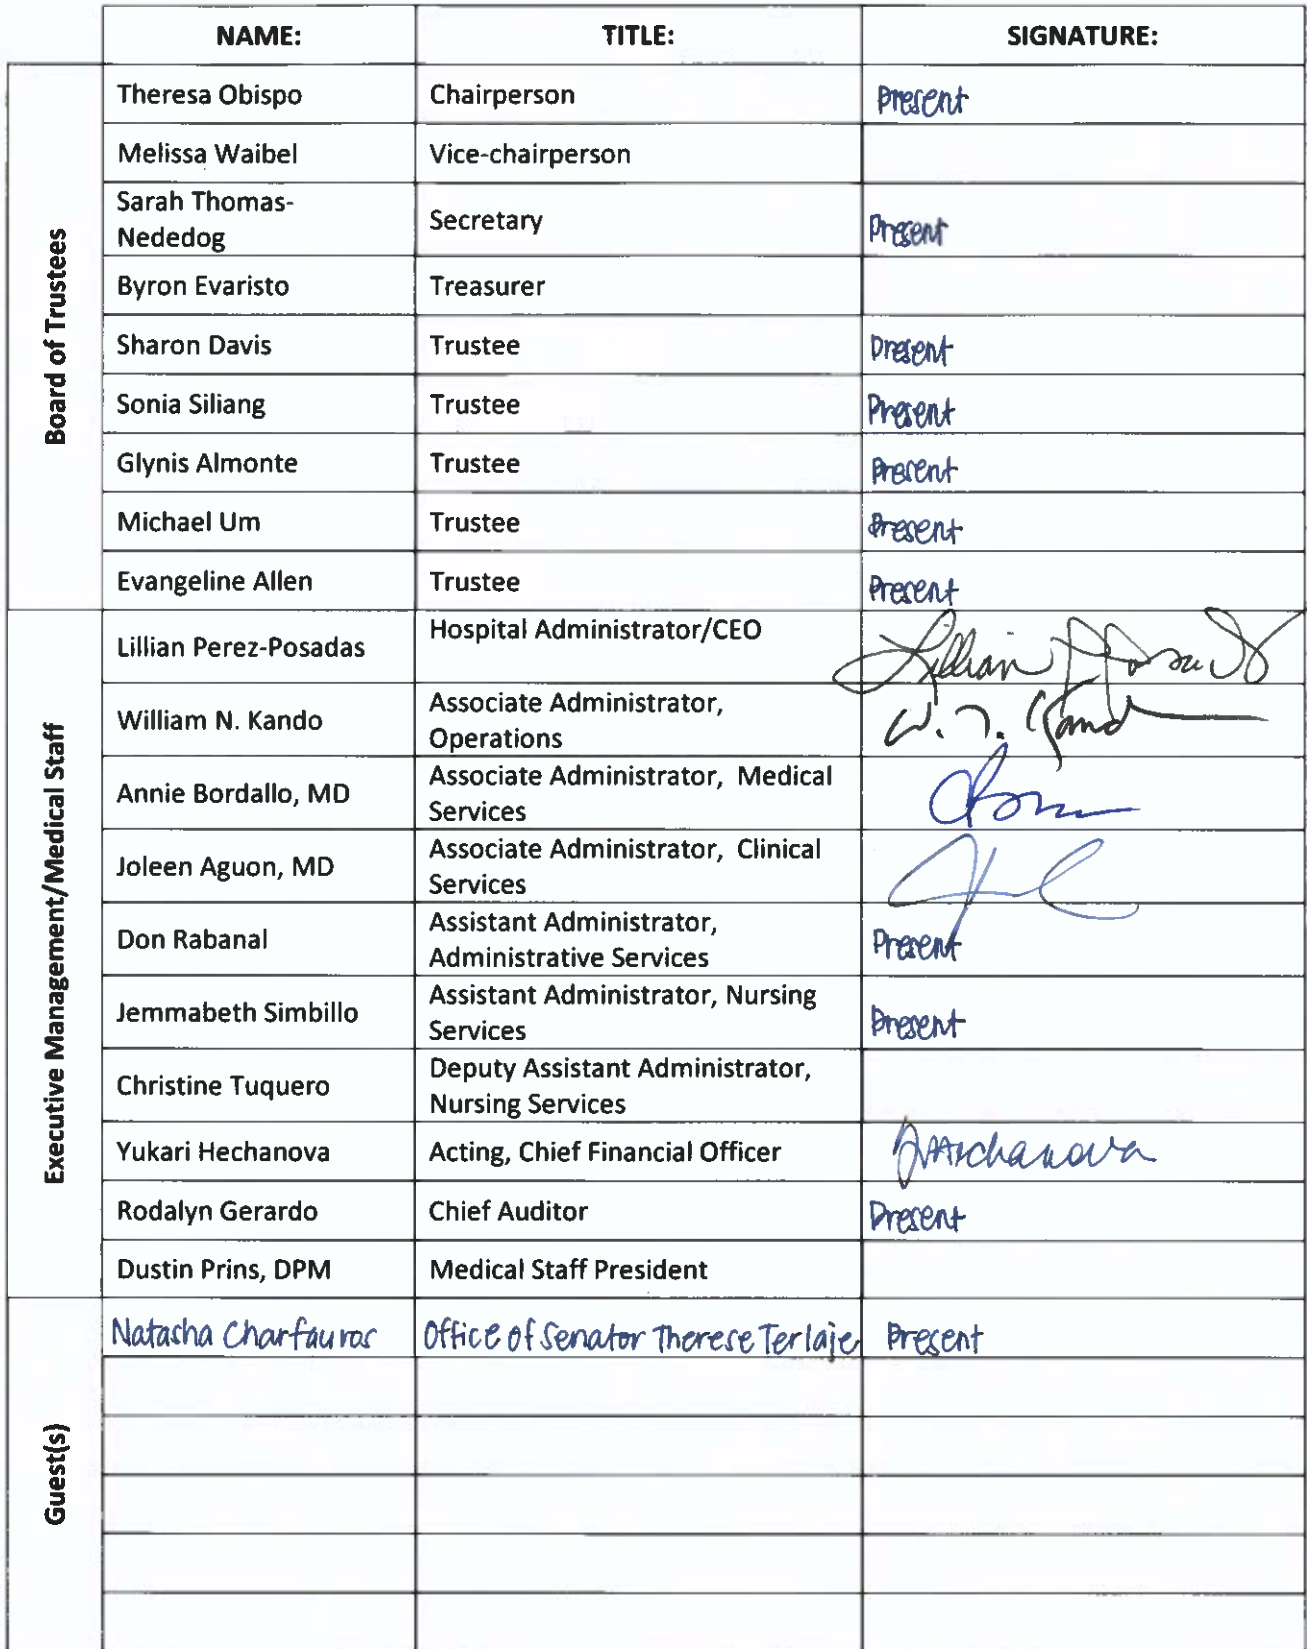 NAME: TITLE: SIGNATURE:
Board of Trustees
Theresa Obispo Chairperson Present
Melissa Waibel Vice-chairperson
Sarah Thomas-
Nededog Secretary Present
Byron Evaristo Treasurer
Sharon Davis Trustee Present
Sonia Siliang Trustee Present
Glynis Almonte Trustee Present
Michael Um Trustee Present
Evangeline Allen Trustee Present
Executive Management/Medical Staff
Lillian Perez-Posadas Hospital Administrator/CEO
William N. Kando Associate Administrator,
Operations
Annie Bordallo, MD Associate Administrator, Medical
Services
Joleen Aguon, MD Associate Administrator, Clinical
Services
Don Rabanal Assistant Administrator,
Administrative Services Present
Jemmabeth Simbillo Assistant Administrator, Nursing
Services Present
Christine Tuquero Deputy Assistant Administrator,
Nursing Services
Yukari Hechanova Acting, Chief Financial Officer
Rodalyn Gerardo Chief Auditor Present
Dustin Prins, DPM Medical Staff President
Guest(s)
Natasha Charfauros Office of Senator Therese Terlaje Present